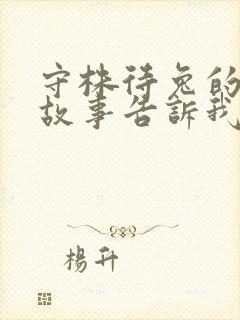 守株待兔的
故事告訴我
楊升